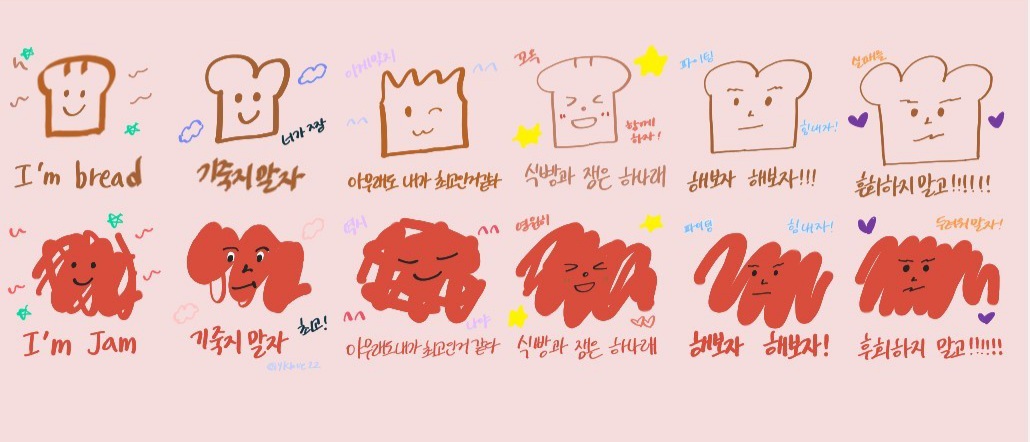 I'm bread
너가 짱
기죽지 말자
이게맞지
아무래도 내가 최고인거같다
꼬옥
함께
하자!
식빵과 쨈은 하나래
파이팅
힘내자!
해보자 해보자!!!
실패쯤
후회하지 말고!!!!!!
I'm Jam
최고!
기죽지 말자
역시
나야
아무래도 내가 최고인거 같다
영원히
식빵과 쨈은 하나래
파이팅
힘내자!
해보자 해보자!
두려워말자!
후회하지 말고!!!!!!